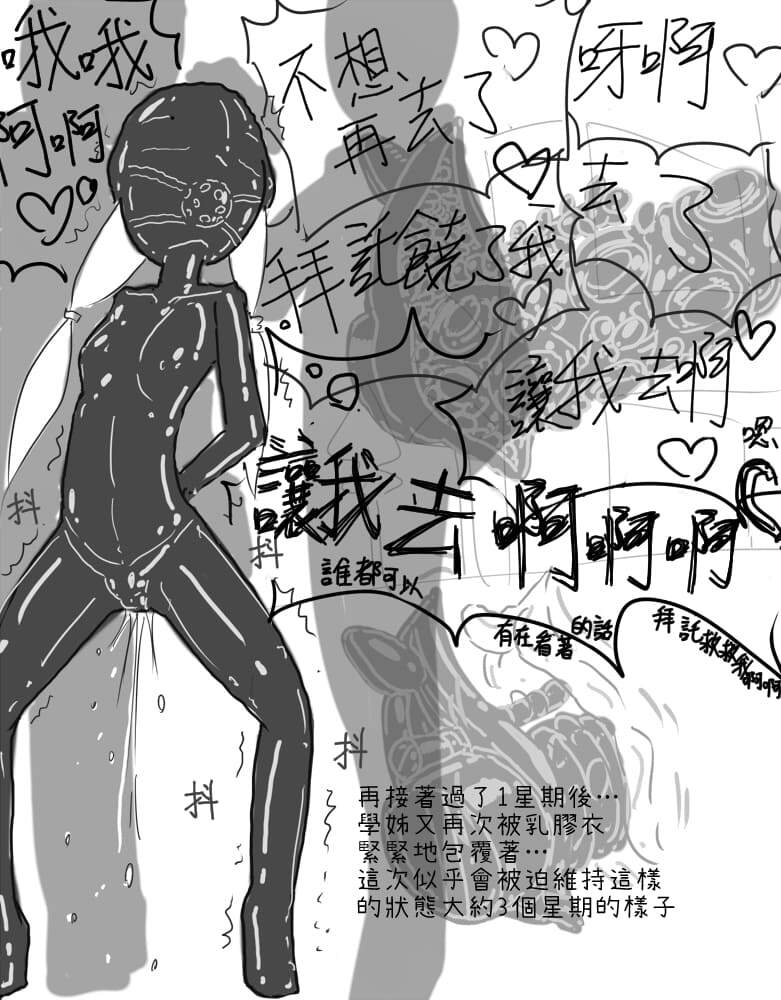 哦哦
阿啊
不想
再去了
呀啊
去了
拜託饒了我
讓我去啊
讓我去啊啊啊
誰都可以
有在看著的話
拜託
抖
抖
抖
抖
再接著過了1星期後…
學姊又再次被乳膠衣
緊緊地包覆著…
這次似乎會被迫維持這樣
的狀態大約3個星期的樣子